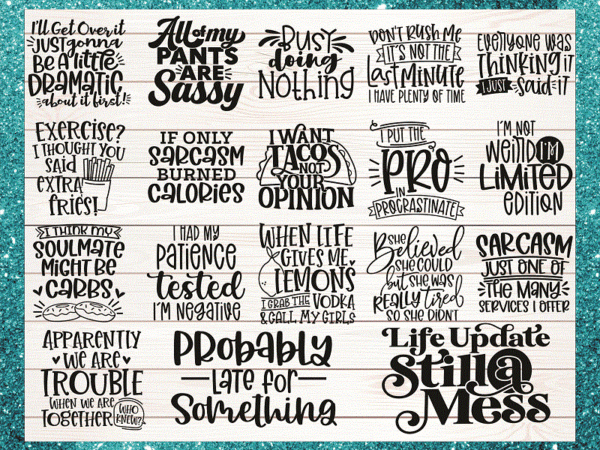 I'll Get Over it
JUST gonna
Be A little
DRAMATIC
about it first!
All of my
PANTS
ARE
Sassy
Busy
doing
Nothing
DON'T RUSH ME
IT'S NOT THE
Last MINUTE
I HAVE PLENTY OF TIME
Everyone was
Thinking it
I JUST Said it
EXERCISE?
I THOUGHT YOU
Said
EXTRA
fries!
IF ONLY
SARCASM
BURNED
CALORIES
I WANT
TACOS
NOT
YOUR
OPINION
I PUT THE
PRO
IN
PROCRASTINATE
I'M NOT
WEIRD I'M
LIMITED
EDITION
I THINK MY
SOULMATE
MIGHT BE
CARBS
I HAD MY
PATIENCE
tested
I'M NEGATIVE
WHEN LIFE
GIVES ME
LEMONS
I GRAB THE VODKA
& CALL MY GIRLS
She
Believed
SHE COULD
but SHE WAS
REALLY tired
SO SHE DIDNT
SARCASM
JUST ONE OF
THE MANY
SERVICES I OFFER
APPARENTLY
WE ARE
TROUBLE
WHEN WE ARE
TOGETHER WHO
KNEW?
PROBABLY
LATE for
Something
Life Update
Still a
Mess